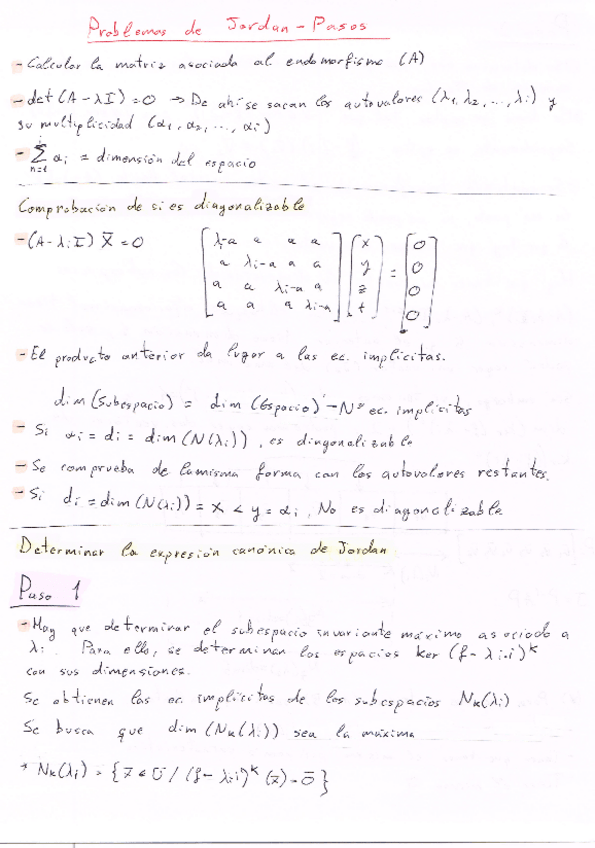 Problemas de Jordan - Pasos
- Calcular la matriz asociada al endomorfismo (A)
- det (A - λI) = 0 → De ahí se sacan los autovalores (λ1, λ2, ..., λi) y
su multiplicidad (α1, α2, ..., αi)
- Σ n=1 i αi = dimensión del espacio
Comprobación de si es diagonalizable
- (A - λiI) X̄ = 0
[λ-a a a a] [x] [0]
[a λi-a a a] [y] [0]
[a a λi-a a] [z] = [0]
[a a a λi-a] [t] [0]
- El producto anterior da lugar a las ec. implícitas.
dim (Subespacio) = dim (Espacio) - Nº ec. implícitas
- Si αi = di = dim (N(λi)), es diagonalizable
- Se comprueba de la misma forma con los autovalores restantes.
- Si di = dim (N(λi)) = x < y = αi, No es diagonalizable
Determinar la expresión canónica de Jordan
Paso 1
- Hay que determinar el subespacio invariante máximo asociado a
λi. Para ello, se determinan los espacios ker (f - λi·i)^k
con sus dimensiones.
Se obtienen las ec. implícitas de los subespacios Nk(λi)
Se busca que dim (Nk(λi)) sea la máxima
* Nk(λi) = { x̄ ∈ Ū / (f - λ·i)^k (x̄) = 0̄ }